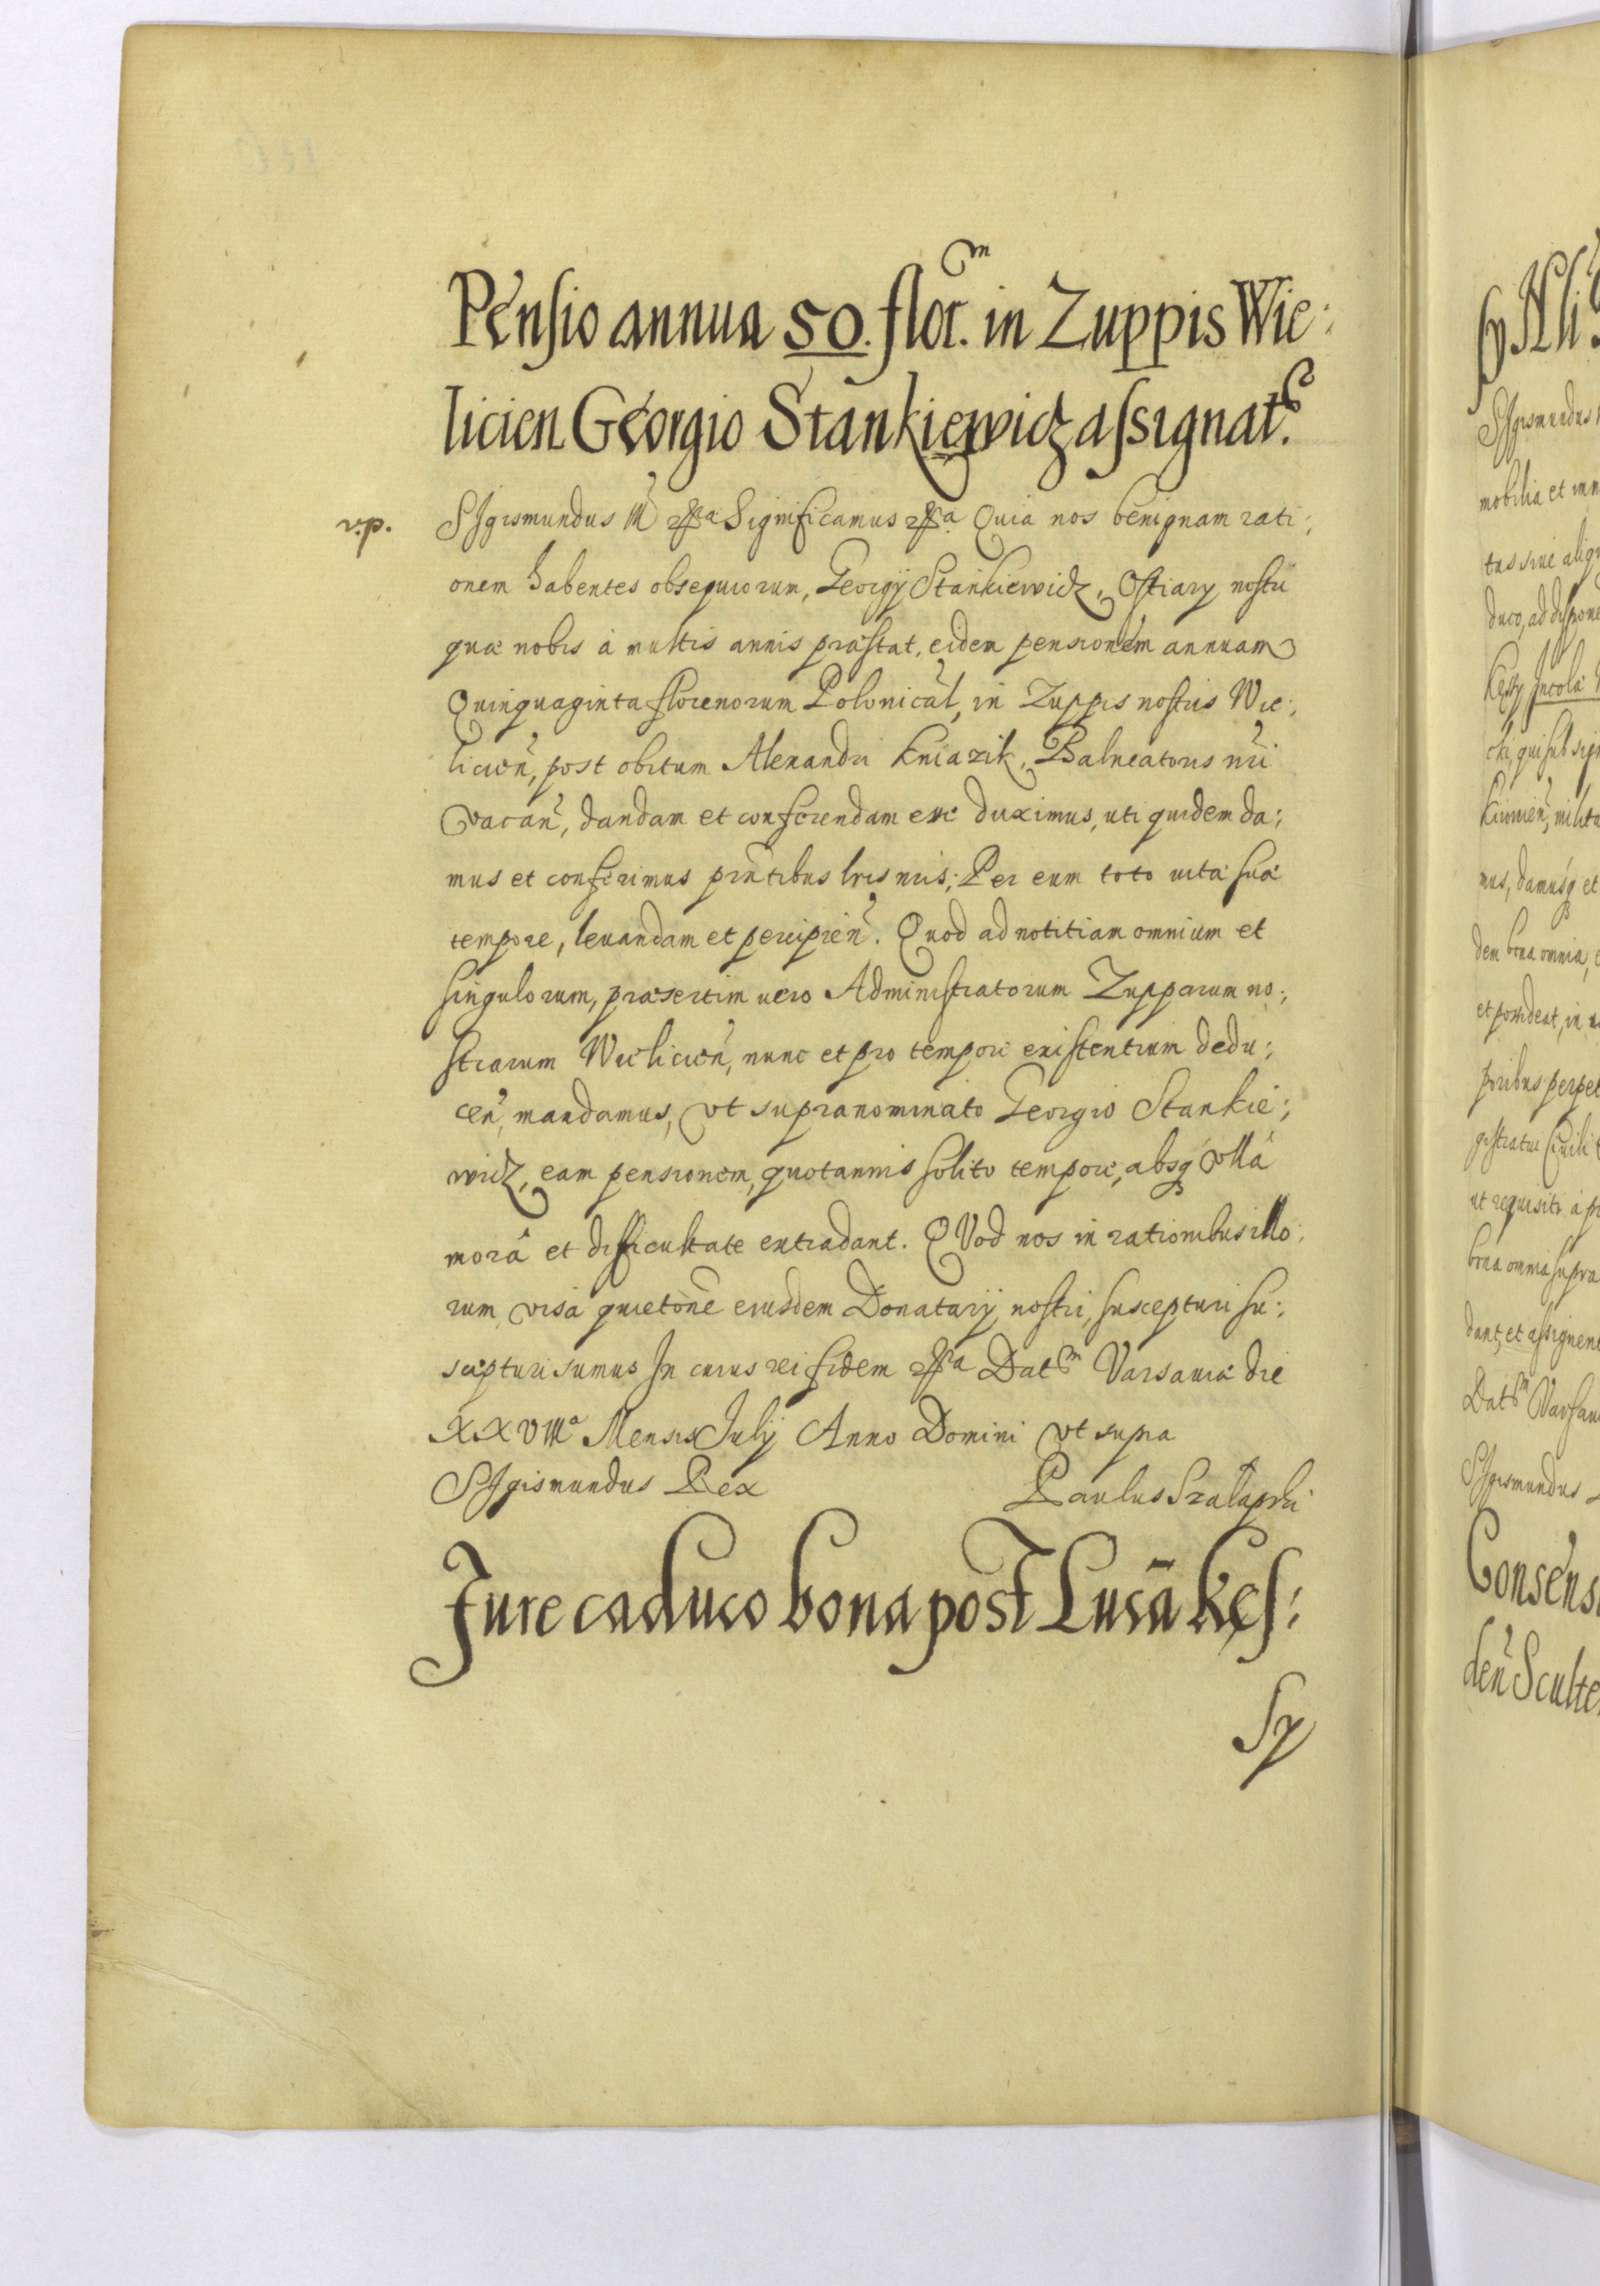 Pensio annua 50. flor.m in Zuppis Wie:
licien Georgio Stankiewicz assignat.
r.p.
SIgismundus III etca Significamus etca Quia nos benignam rati:
onem habentes obsequiorum, Georgij Stankiewicz, Ostiarij nostri
quæ nobis à multis annis præstat, eidem pensionem annuam
Quinquaginta florenorum Polonical, in Zuppis nostris Wie:
licien, post obitum Alexandri Kniazik, Balneatoris nri
vacan, dandam et conferendam esse duximus, uti quidem da:
mus et conferimus pñtibus lris nris; Per eum toto uitæ suæ
tempore, leuandam et percipien. Quod ad notitiam omnium et
singulorum, præsertim uero Administratorum Zupparum no:
strarum Wielicien, nunc et pro tempore existentium dedu:
cen, mandamus, vt supranominato Georgio Stankie:
wicz, eam pensionem, quotannis solito tempore, absq vllâ
morâ et difficultate extradant. QVod nos in rationibus illo:
rum, visa quietone eiusdem Donatarij nostri, suscepturi su:
scepturi sumus In cuius rei fidem etca Datm Varsauiæ die
XXVIIIa Mensis Julij Anno Domini vt supra
SIgismundus Rex
Paulus Szczłapski
Jure caduco bona post Lucā Kęs:
sy
sy Ali
SIgismundus
mobilia et imm
tus siue aliq
duco, ad dispone
Kęssy Incolæ
chi, qui sub sign
Kiiouien, milita
mus, damusq et
dem bona omnia,
et possideat, in
poribus perpet
gistratui Ciuili
ut requisiti à
bona omnia supra
dant, et assignent
Datm Warsau
SIgismundus
Consens
den Sculte